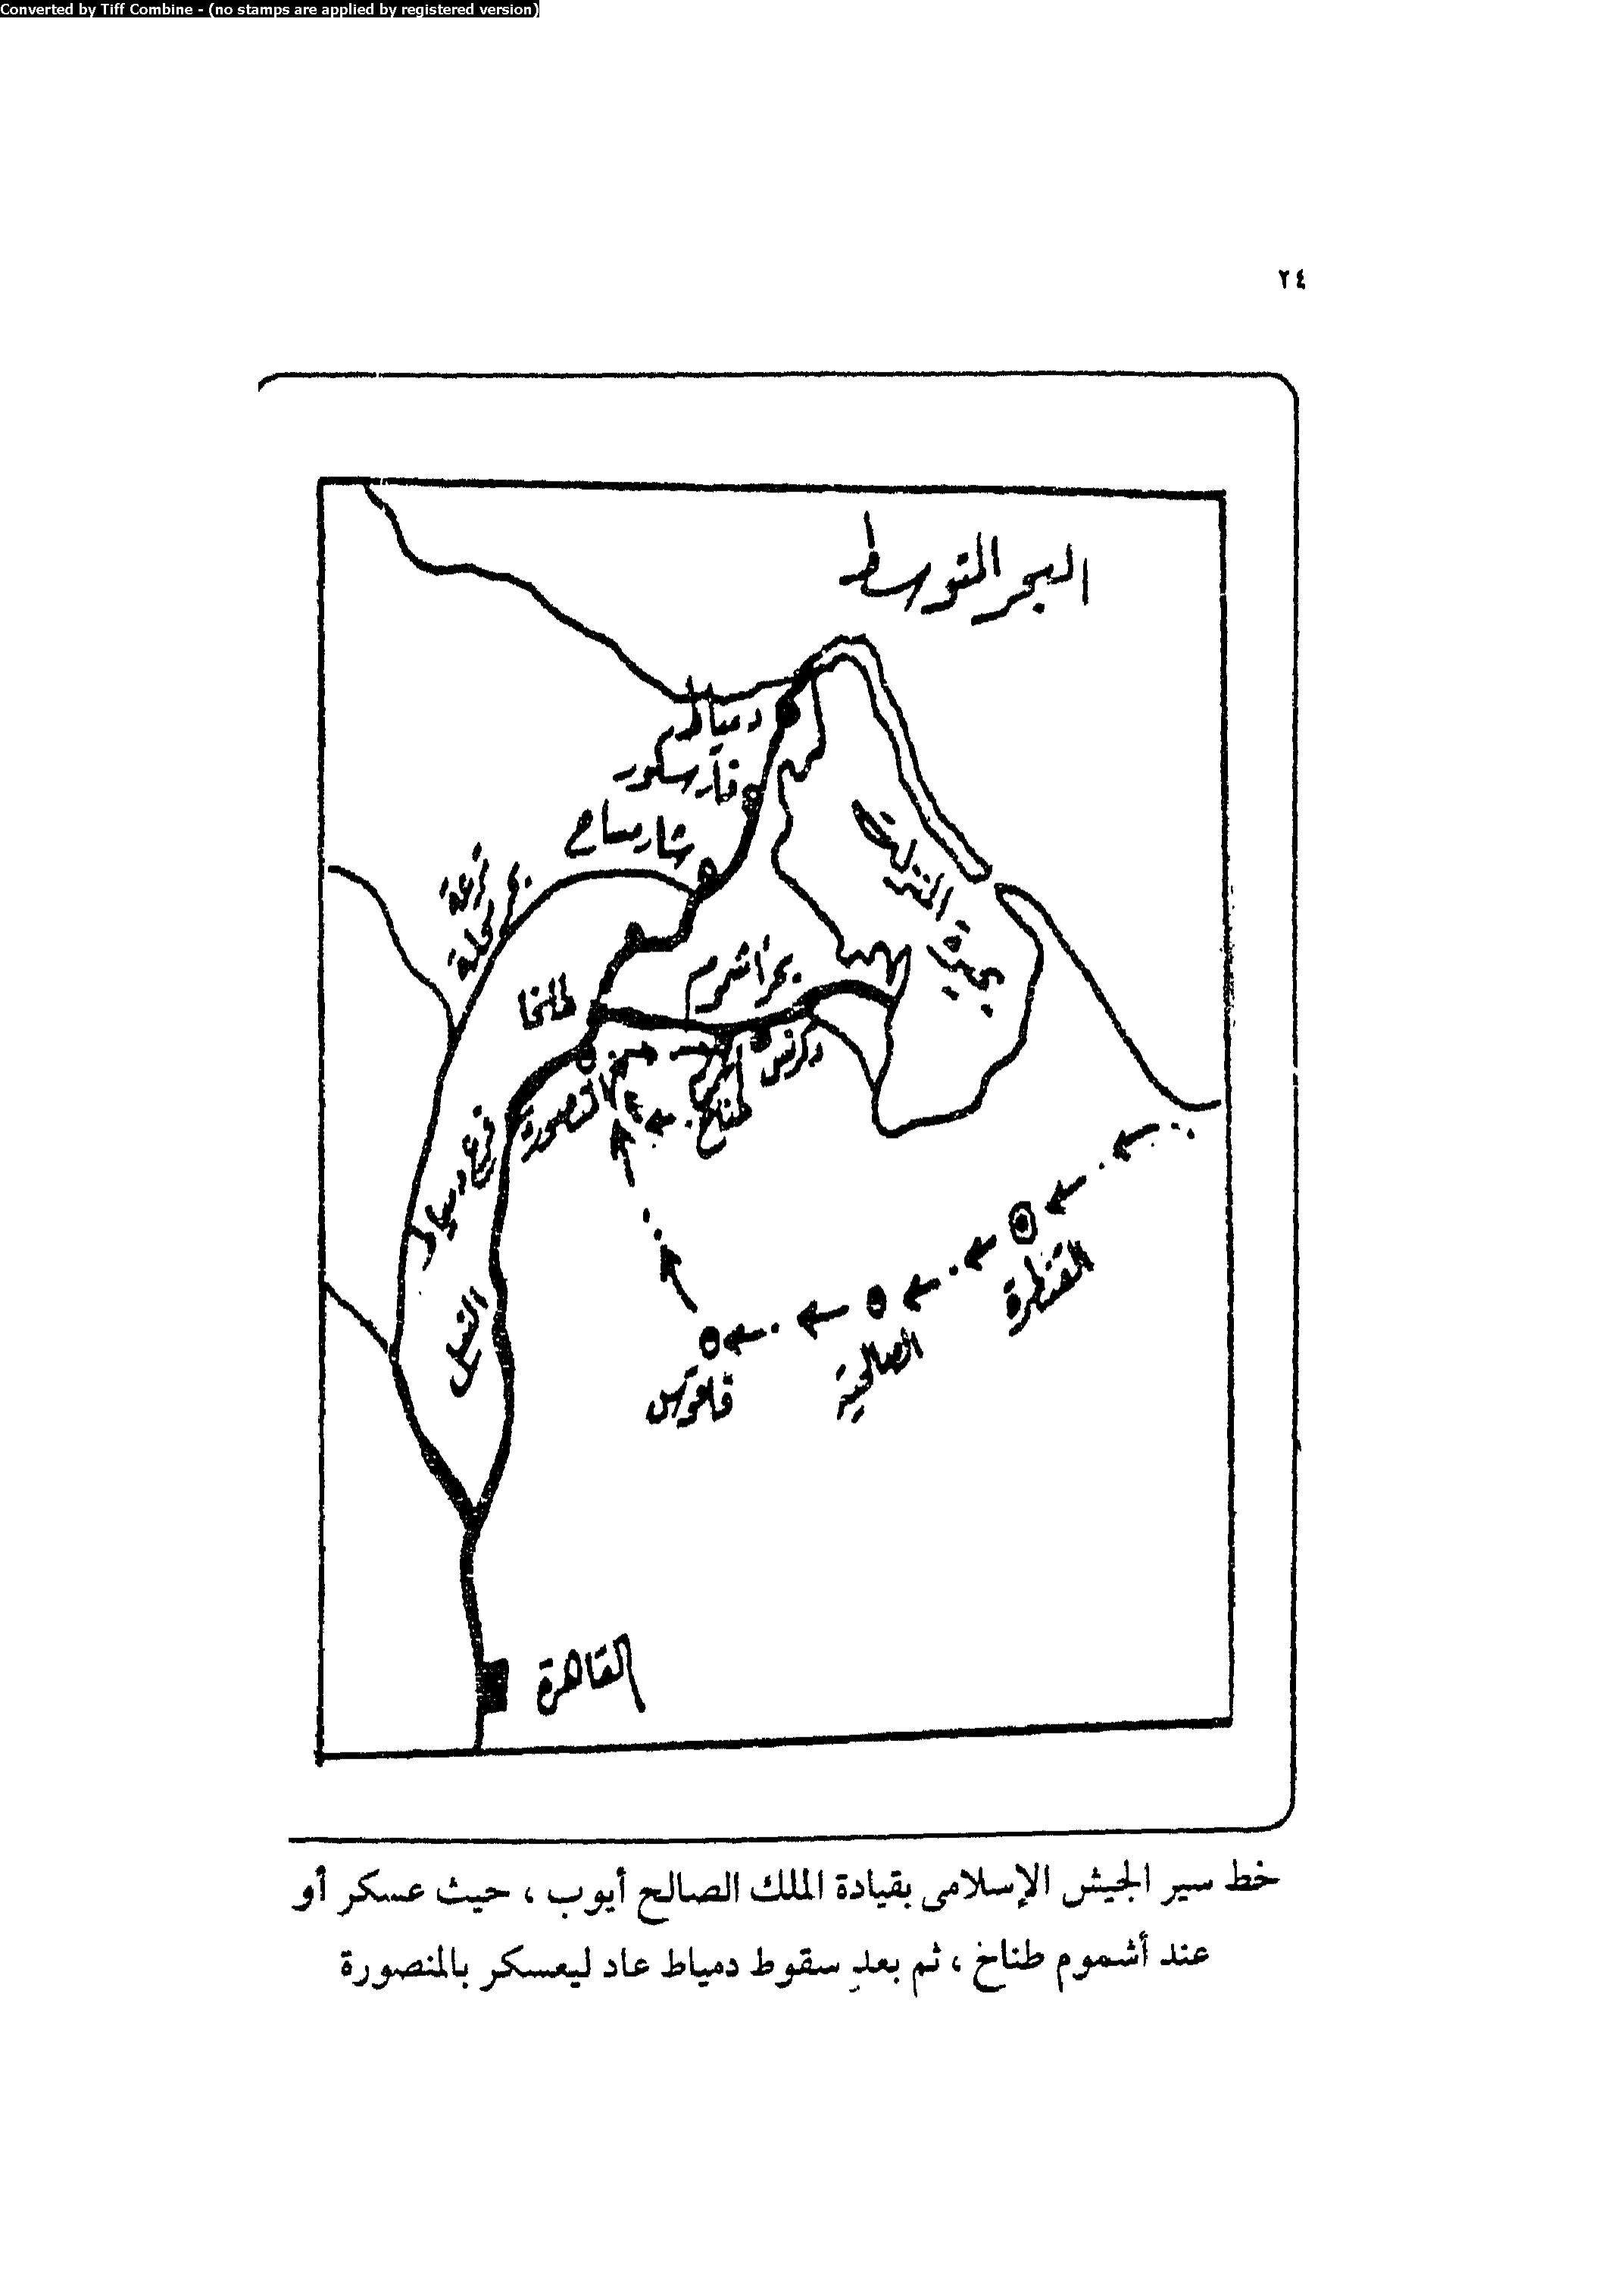 Converted by Tiff Combine - (no stamps are applied by registered version)
٢٤
البحر المتوسط
دمياط
فارسكور
شارمساح
ترعة
بحر المحلة
بحيرة المنزلة
بحر أشموم
طلخا
دكرنس
أشموم
طناخ
المنصورة
فرع دمياط
النيل
القنطرة
الصالحية
فاقوس
القاهرة
خط سير الجيش الإسلامى بقيادة الملك الصالح أيوب ، حيث عسكر أو
عند أشموم طناخ ، ثم بعد سقوط دمياط عاد ليعسكر بالمنصورة